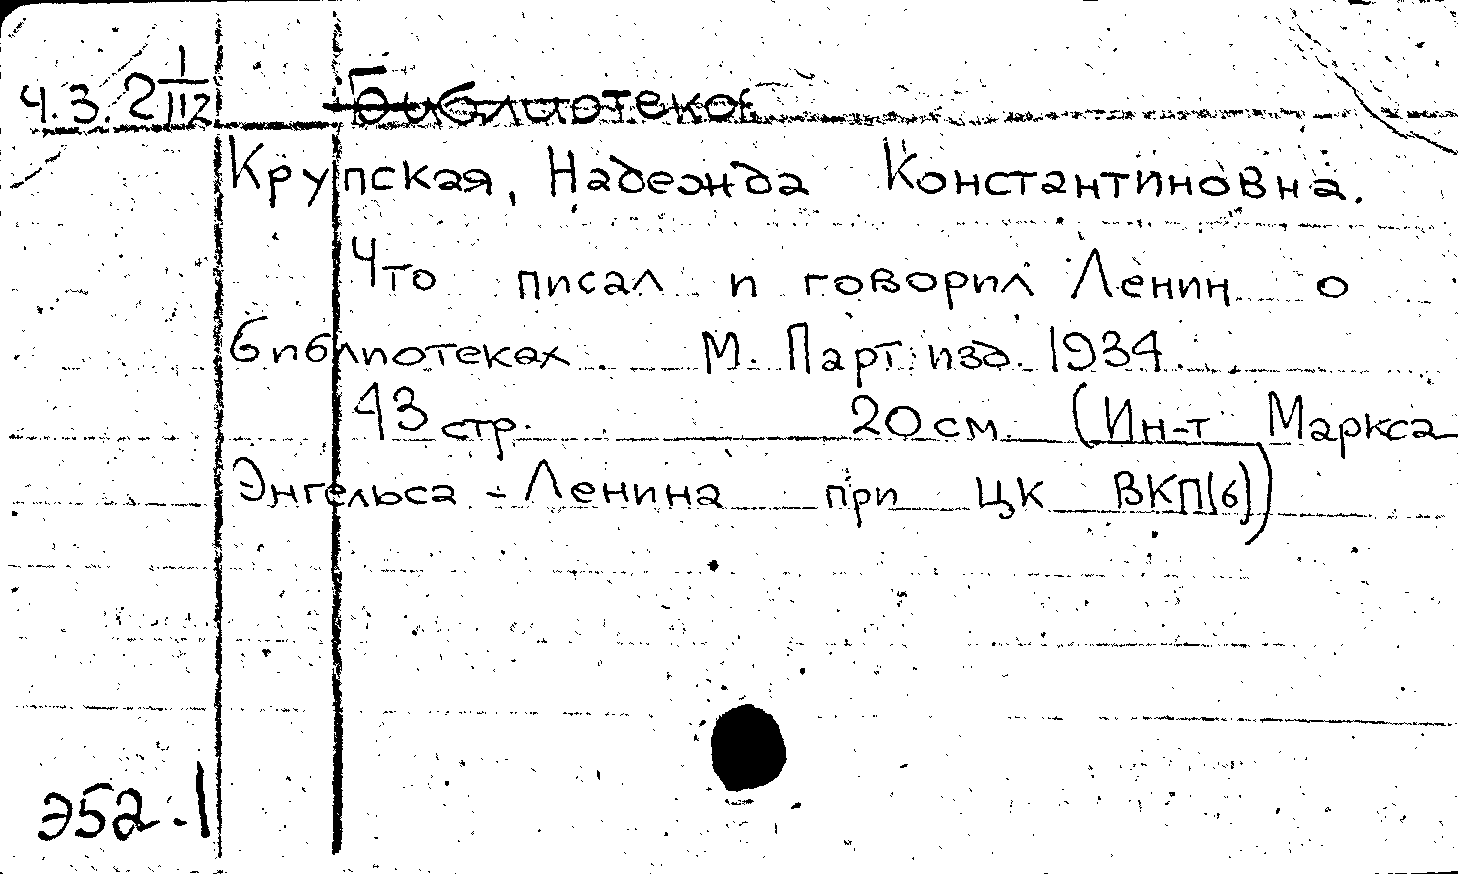 Ч.З. 2 1/112 Библиотеков
Крупская, Надежда Константиновна.
Что писал и говорил Ленин о
библиотеках. М. Парт. изд. 1934.
43 стр. 20 см. (Ин-т Маркса
Энгельса - Ленина при ЦК ВКП(б))
Э52-1